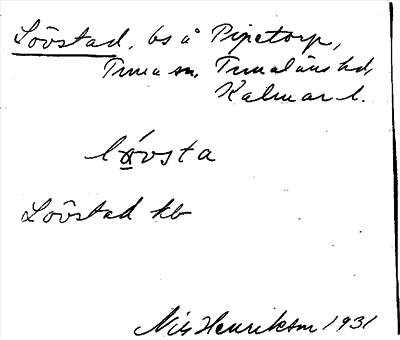 Lövstad, bs å Pipetorp,
Tuna sn, Tunaläns hd,
Kalmar l.
lö́vsta
Lövstad kb
Nils Henriksson 1931